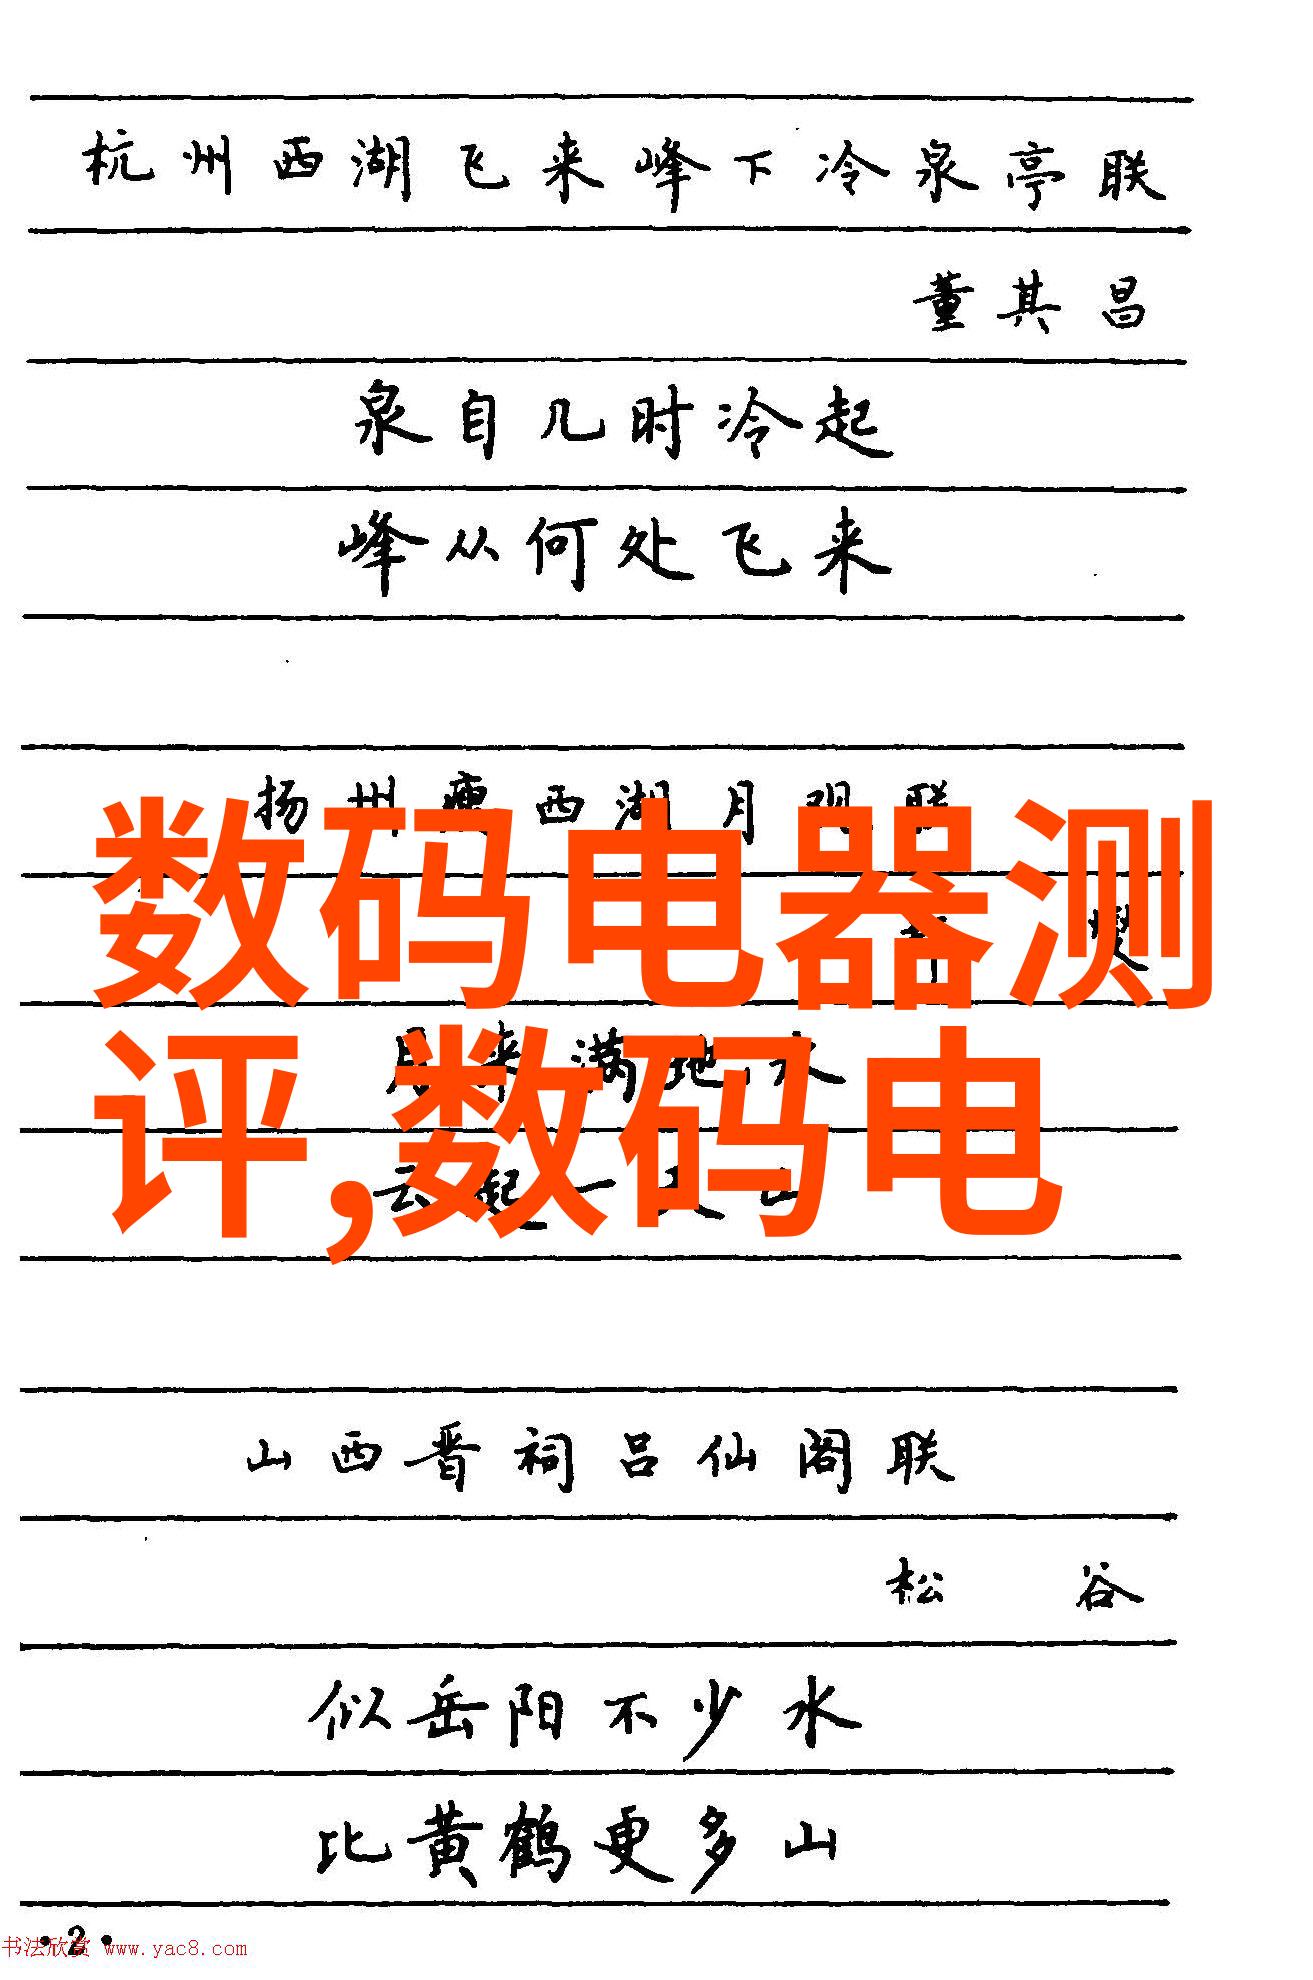 杭州西湖飞来峰下冷泉亭联
董其昌
泉自几时冷起
峰从何处飞来
扬州瘦西湖月观联
数码电器测
燮
月来满地水
评,数码电
云起一天山
山西晋祠吕仙阁联
松 谷
似岳阳不少水
比黄鹤更多山
·2·
书法欣赏 www.yac8.com